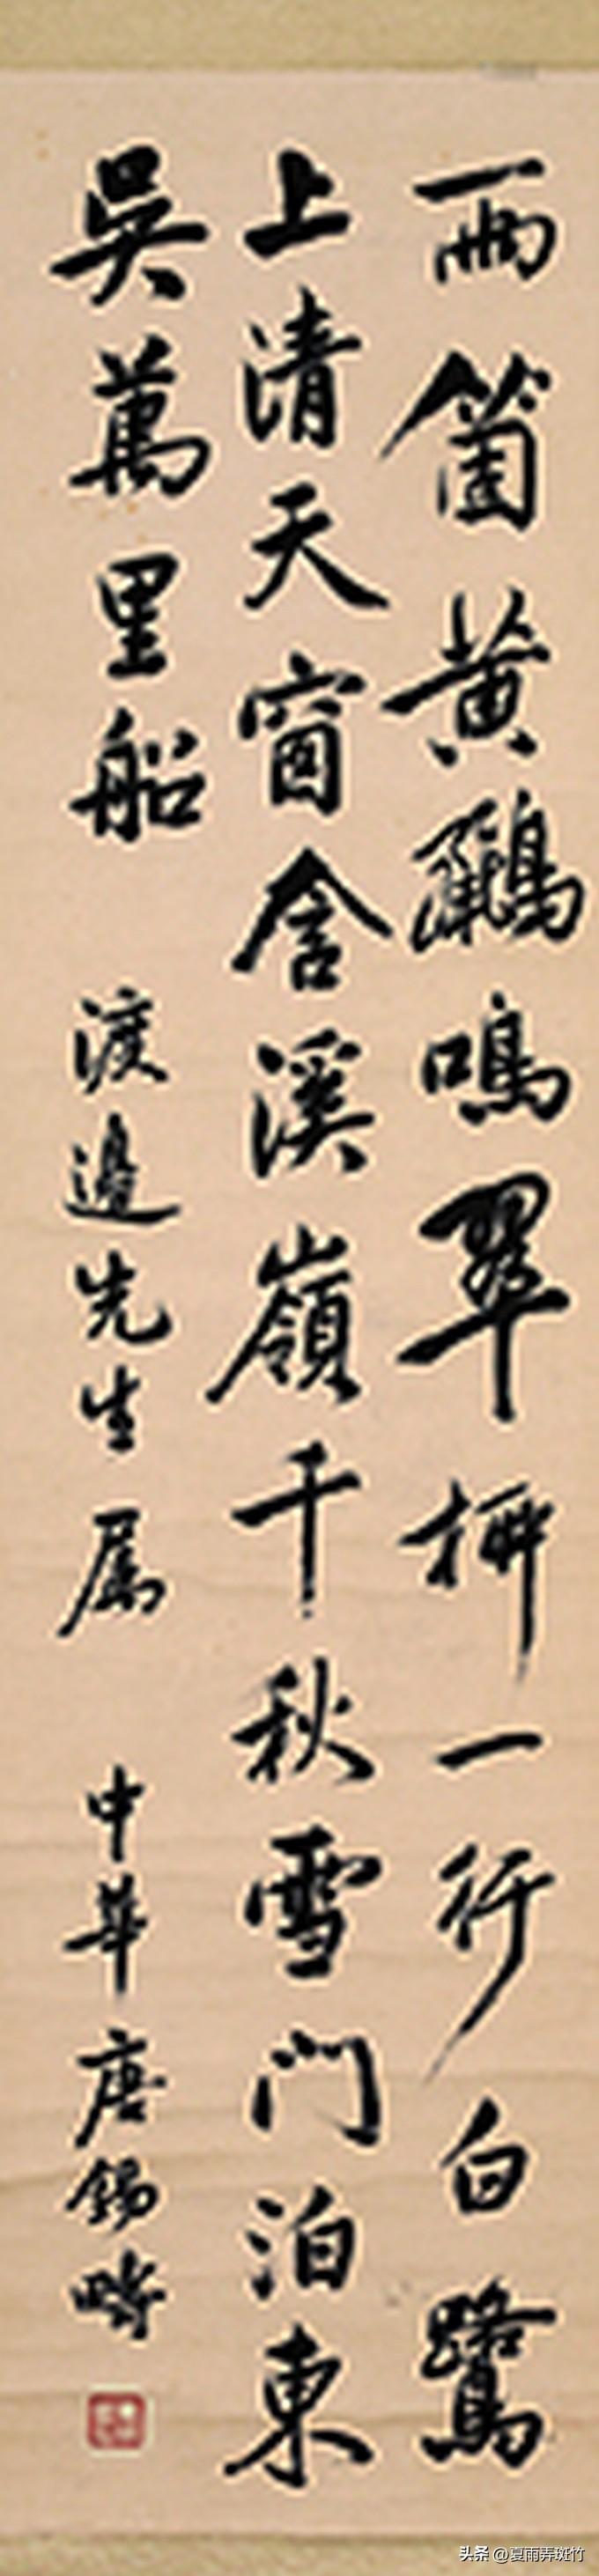 兩箇黄鸝鳴翠柳一行白鷺
上清天窗含溪嶺千秋雪門泊東
吳萬里船 渡邉先生属 中華唐錫疇
头条 @夏雨弄斑竹